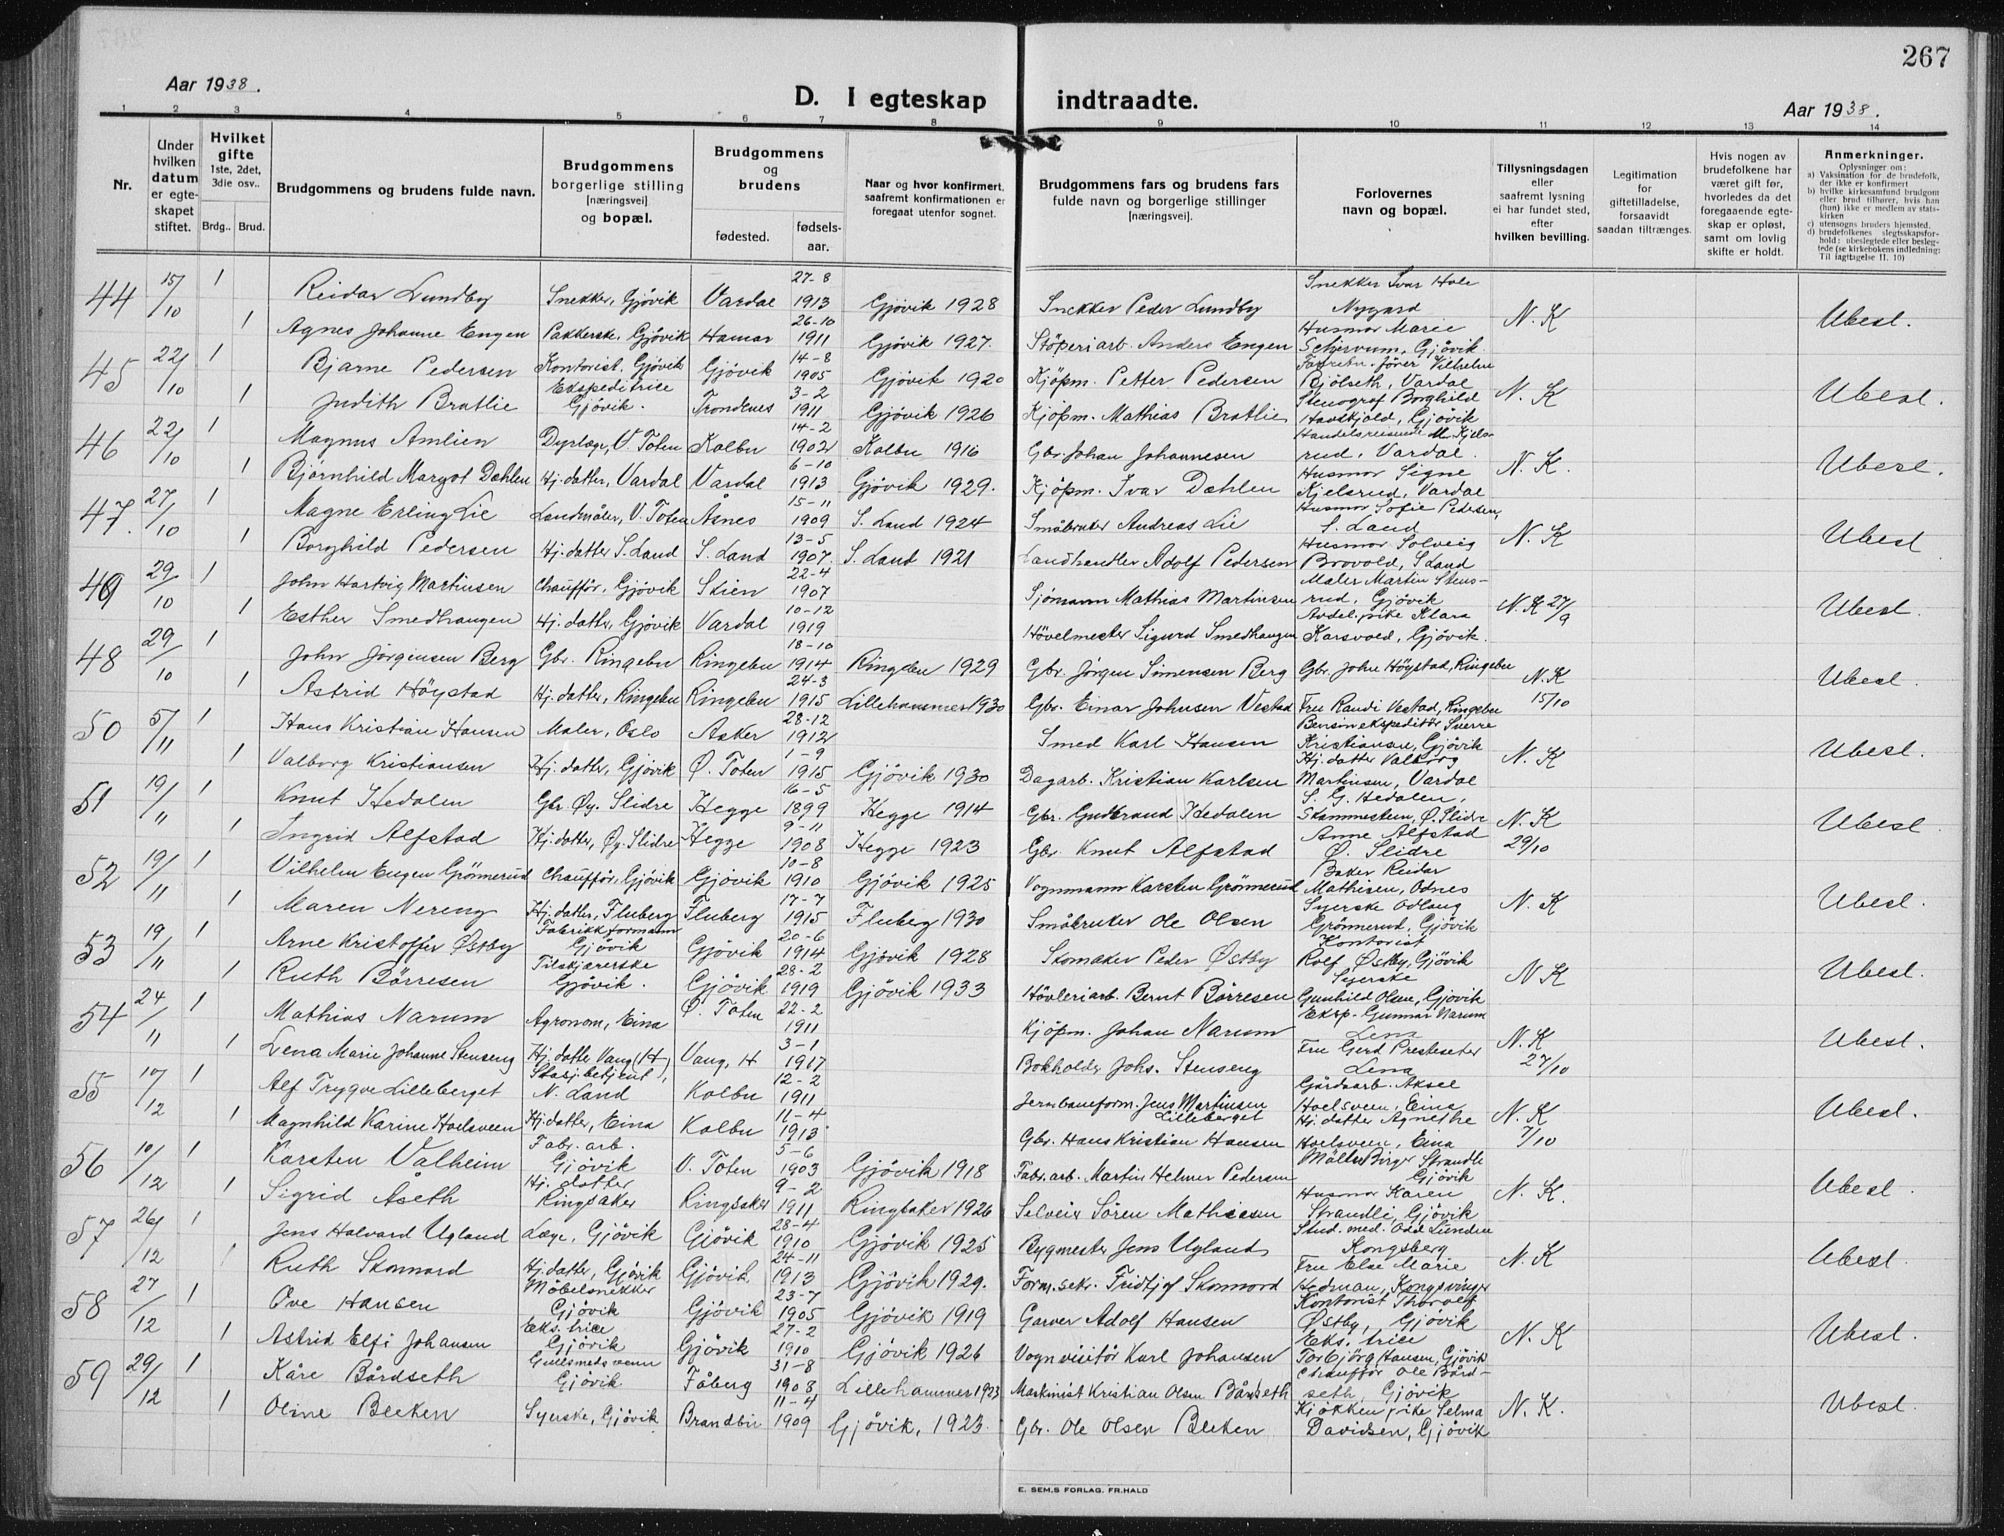 267
Aar 1938.
D. I egteskap indtraadte.
Aar 1938.
1 2 3 4 5 6 7 8 9 10 11 12 13 14
Nr.
Under hvilken datum er egteskapet stiftet.
Hvilket gifte 1ste, 2det, 3die osv..
Brdg.. Brud.
Brudgommens og brudens fulde navn.
Brudgommens borgerlige stilling [næringsvei] og bopæl.
Brudgommens og brudens
fødested. fødselsaar.
Naar og hvor konfirmert, saafremt konfirmationen er foregaat utenfor sognet.
Brudgommens fars og brudens fars fulde navn og borgerlige stillinger [næringsvei].
Forlovernes navn og bopæl.
Tillysningsdagen eller saafremt lysning ei har fundet sted, efter hvilken bevilling.
Legitimation for giftetilladelse, forsaavidt saadan tiltrænges.
Hvis nogen av brudefolkene har været gift før, hvorledes da det foregaaende egteskap er opløst, samt om lovlig skifte er holdt.
Anmerkninger.
Oplysninger om:
a) Vaksination for de brudefolk, der ikke er konfirmert
b) hvilke kirkesamfund brudgom eller brud tilhører, hvis han (hun) ikke er medlem av statskirken
c) utensogns bruders hjemsted.
d) brudefolkenes slegtsskapsforhold: ubeslegtede eller beslegtede (se kirkebokens indledning: Til iagttagelse II. 10)
44 15/10 1 Reidar Lundby Snekker, Gjövik Vardal 27-8 1913 Gjövik 1928 Snekker Peder Lundby Snekker Ivar Hole Nygard N. K Ubesl.
1 Agnes Johanne Engen Pakkerske, Gjövik Hamar 26-10 1911 Gjövik 1927. Stöperiarb. Anders Engen Husmor Marie Schjervum, Gjövik.
45 22/10 1 Bjarne Pedersen Kontorist, Gjövik Gjövik 14-8 1905 Gjövik 1920 Kjöpm. Petter Pedersen Vilhelm Bjölseth, Vardal N. K Ubesl.
1 Judith Bratlie Ekspeditrice Gjövik. Trondenes 3-2 1911 Gjövik 1926 Kjöpm. Mathias Bratlie Stenograf Borghild Gjövik
46 22/10 1 Magnus Amlien Dyrlæge, V. Toten Kolbu 14-2 1902 Kolbu 1916 Gbr. Johan Johannesen Handelsreisende M. Kjelsrud, Vardal. N. K. Ubesl.
1 Björnhild Margot Dæhlen Hj. datter, Vardal Vardal 6-10 1913 Gjövik 1929. Kjöpm. Ivar Dæhlen Husmor Signe Kjelsrud, Vardal
47. 27/10 1 Magne Erling Lie Landmåler, V. Toten Åsnes 15-11 1909 S. Land 1924 Småbruker Andreas Lie Husmor Sofie Pedersen, S. Land N. K Ubesl
1 Borghild Pedersen Hj. datter S. Land S. Land 13-5 1907. S. Land 1921 Landhandler Adolf Pedersen Husmor Solveig Brovold, S Land
49 29/10 1 John Hartvig Martinsen Chaufför, Gjövik Skien 22-4 1907 Sjömann Mathias Martinsen Maler Martin Stensrud, Gjövik N. K 27/9 Ubesl.
1 Esther Smedhaugen Hj. datter, Gjövik Vardal 10-12 1919 Hövelmester Sigurd Smedhaugen Avdel. pike Klara Karsvold, Gjövik.
48 29/10 1 John Jörgensen Berg Gbr. Ringebu Ringebu 18-10 1914 Ringebu 1929 Gbr. Jörgen Simensen Berg Gbr. John Höystad, Ringebu N. K 15/10 Ubesl.
1 Astrid Höystad Hj. datter, Ringebu Ringebu 24-3 1915 Lillehammer 1930 Gbr. Einar Johnsen Vestad Fru Randi Vestad, Ringebu
50 5/11 1 Hans Kristian Hansen Maler, Oslo Asker 28-12 1912 Smed Karl Hansen Bensinekspeditör Sverre Kristiansen, Gjövik N. K Ubesl.
1 Valborg Kristiansen Hj. datter, Gjövik Ø. Toten 1-9 1915 Gjövik 1930 Dagarb. Kristian Karlsen Hj. datter Valborg Martinsen, Vardal
51 19/11 1 Knut Hedalen Gbr. Øy. Slidre Hegge 16-5 1899 Hegge 1914 Gbr. Gudbrand Hedalen S. G. Hedalen, Skammestein, Ø. Slidre N. K 29/10 Ubesl.
1 Ingrid Alfstad Hj. datter, Øy. Slidre Hegge 9-11 1908 Hegge 1923 Gbr. Knut Alfstad Anne Alfstad Ø. Slidre
52 19/11 1 Vilhelm Eugen Grönnerud Chaufför, Gjövik Gjövik 10-8 1910 Gjövik 1925 Vognmann Karsten Grönnerud Baker Reidar Mathisen, Odnes N. K Ubesl.
1 Maren Nereng Hj. datter, Fluberg Fluberg 17-7 1915 Fluberg 1930 Småbruker Ole Olsen Syerske Odlaug Grönnerud, Gjövik
53 19/11 1 Arne Kristoffer Østby Fabrikkformann Gjövik Gjövik 20-6 1914 Gjövik 1928 Skomaker Peder Østby Kontorist Rolf Østby, Gjövik N K Ubesl.
1 Ruth Börresen Tilskjærerske Gjövik. Gjövik 28-2 1919 Gjövik 1933 Hövleriarb. Bernt Börresen Syerske Gunhild Olsen, Gjövik
54 24/11 1 Mathias Narum Agronom, Eina Ø. Toten 22-2 1911 Kjöpm. Johan Narum Eksp. Gunnar Narum Lena N. K 27/10 Ubesl.
1 Lena Marie Johanne Stenseng Hj. datter Vang (H) Vang, H 3-1 1917 Bokholder Johs. Stenseng Fru Gerd Presteseter Lena
55 10/12 1 Alf Trygve Lilleberget Stasj. betjent, N. Land Kolbu 12-2 1911 Jernbaneform. Jens Martinsen Lilleberget Gårdsarb. Aksel Hoelsveen, Eina N. K 7/10 Ubesl.
1 Magnhild Karine Hoelsveen Hj. datter, Eina Kolbu 11-4 1913 Gbr. Hans Kristian Hansen Hj. datter Agnethe Hoelsveen, Eina
56 10/12 1 Karsten Valheim Fabr. arb. Gjövik V. Toten 5-6 1903 Gjövik 1918 Fabr. arb. Martin Helmer Pedersen Möller Birger Strandli Gjövik N. K. Ubesl.
1 Sigrid Aseth Hj. datter Ringsaker Ringsaker 9-2 1911 Ringsaker 1926 Selveier Sören Mathiesen Husmor Karen Strandli, Gjövik
57 26/12 1 Jens Halvard Ugland Læge, Gjövik Gjövik 28-4 1910 Gjövik 1925 Bygmester Jens Ugland Stud. med. Odd Lunden Kongsberg N. K Ubesl.
1 Ruth Skonnord Hj. datter, Gjövik Gjövik 24-11 1913 Gjövik 1929. Form. sekr. Fridtjof Skonnord Fru Else Marie Hedman, Kongsvinger
58 27/12 1 Ove Hansen Möbelsnekker Gjövik Gjövik 23-7 1905 Gjövik 1919 Garver Adolf Hansen Kontorist Thoralf Østby, Gjövik N. K Ubesl.
1 Astrid Elfi Johansen Eks. trice Gjövik Gjövik 27-2 1910 Gjövik 1926 Vognvisitör Karl Johansen Eks. trice Torbjörg Hansen, Gjövik
59 29/12 1 Kåre Bårdseth Gullsmedsvenn Gjövik Fåberg 31-8 1908 Lillehammer 1923 Maskinist Kristian Olsen Bårdseth Chaufför Ole Bårdseth, Gjövik N. K. Ubesl.
1 Oline Bleken Syerske, Gjövik Brandbu 11-4 1909 Gjövik, 1923. Gbr. Ole Olsen Bleken Kjökkenpike Selma Davidsen, Gjövik
E. SEM.S FORLAG. FR.HALD